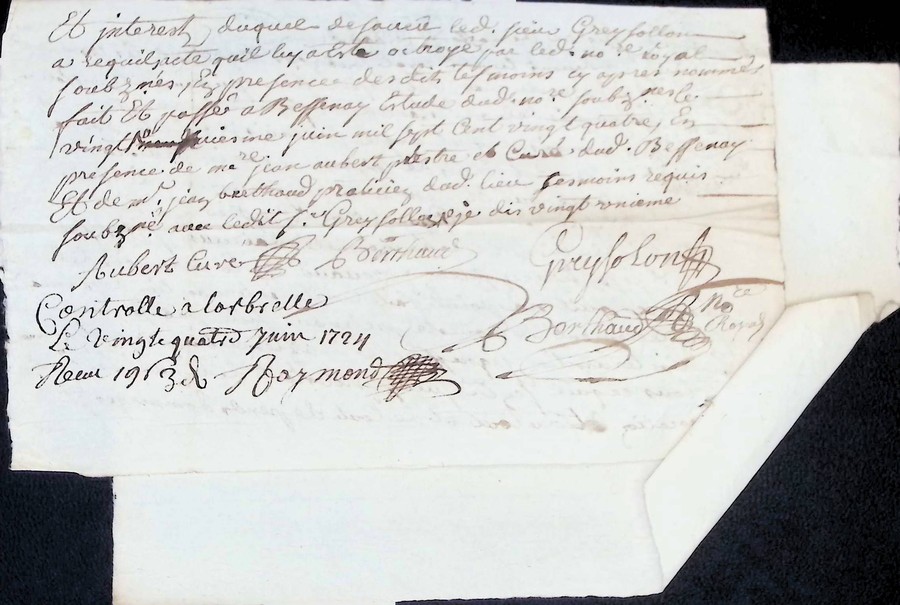 Et interest, duquel desaveu led. sieur Greysollon
a requis acte qu'il luy a esté octroyé par led. no.re royal
soubz.nés, En presence des dits tesmoins cy apres nommés
fait Et passé a Bessenay Etude dud. no.re soubz.nes le
vingt uniesme juin mil sept Cent vingt quatre, En
presence de m.re jean aubert prestre et Curé dud. Bessenay
Et de m.r jean berthaud praticien dud. lieu tesmoins requis
soubz.nés avec ledit s.r Greysollon je dis vingt unieme
Aubert Curé Berthaud Greysolon
Berthaud No.re Royal
Controllé a Larbrelle
Le vingt quatre Juin 1724
Raymond